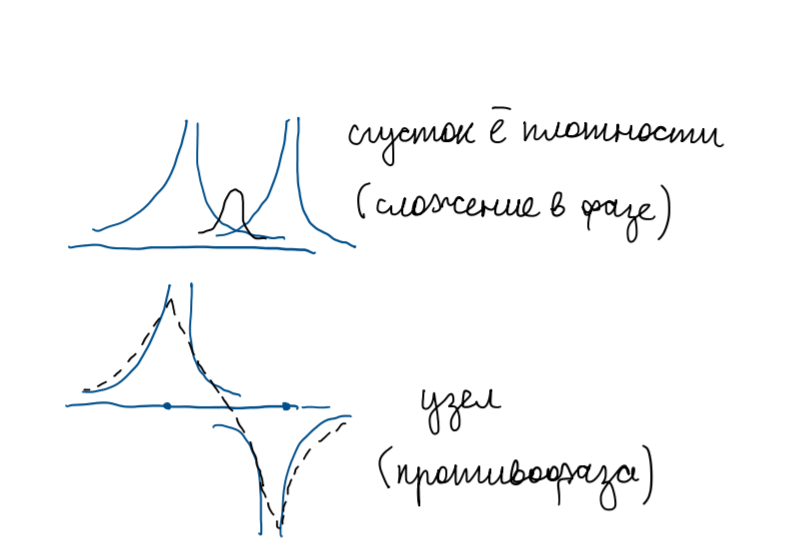 сгусток ē плотности
(сложение в фазе)
узел
(противофаза)